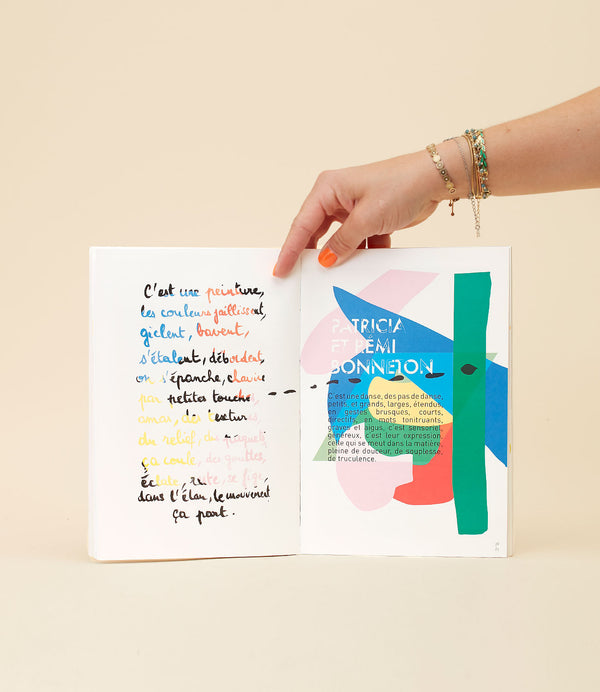 C'est une peinture,
les couleurs jaillissent,
giclent, bavent,
s'étalent, débordent,
on s'épanche, chavire
par petites touches
amas, des
du relief, du
ça coule, des gouttes,
éclate, se fige,
dans l'élan, le mouvement
ça part.
PATRICIA
ET RÉMI
BONNETON
C'est une danse, des pas de danse,
petits, et grands, larges, étendus,
en gestes brusques, courts,
directifs, en mots tonitruants,
graves et aigus, c'est sensoriel,
généreux, c'est leur expression,
celle qui se meut dans la matière,
pleine de douceur, de souplesse,
de truculence.